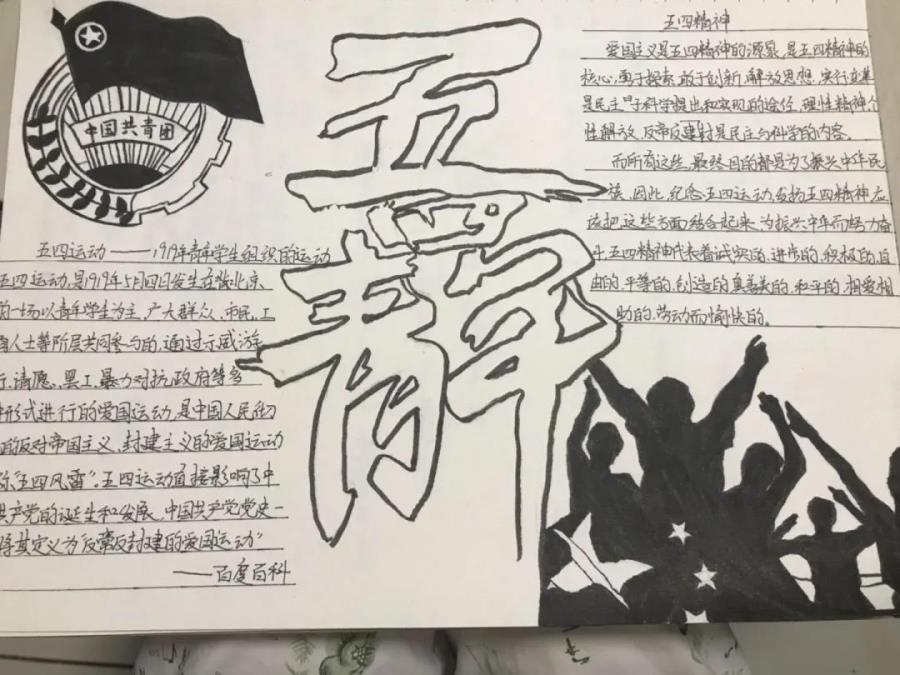 中国共青团
五四青年
五四运动——1919年青年学生组织的运动
五四运动,是1919年5月四日发生在北京,
的一场以青年学生为主,广大群众、市民、工
人士等阶层共同参与的,通过示威游
行、请愿、罢工、暴力对抗政府等多
种形式进行的爱国运动,是中国人民彻
的反对帝国主义、封建主义的爱国运动
称"五四风雷"。五四运动直接影响了中
共产党的诞生和发展,中国共产党党史一
将其定义为"反帝反封建的爱国运动"
——百度百科
五四精神
爱国主义是五四精神的源泉,是五四精神的
核心,勇于探索、敢于创新、解放思想、实行变革
是民主与科学提出和实现的途径,理性精神、个
性解放、反帝反建封是民主与科学的内容。
而所有这些,最终目的都是为了振兴中华民
族,因此,纪念五四运动,发扬五四精神应
该把这些方面结合起来,为振兴中华而努力奋
斗五四精神代表着诚实的、进步的、积极的、自
由的、平等的、创造的、真善美的、和平的、相爱相
助的、劳动而愉快的。